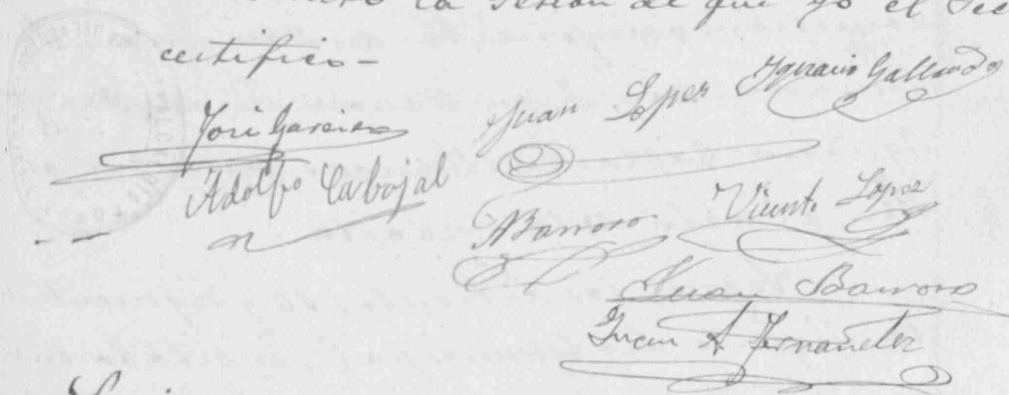 la Sesion de que yo el Sec
certifico-
José Garcia Juan Lopez Ygnacio Gallardo
Adolfo Cabojal
ABarroso Vicente Lopez
Juan Barroso
Juan A Fernandez